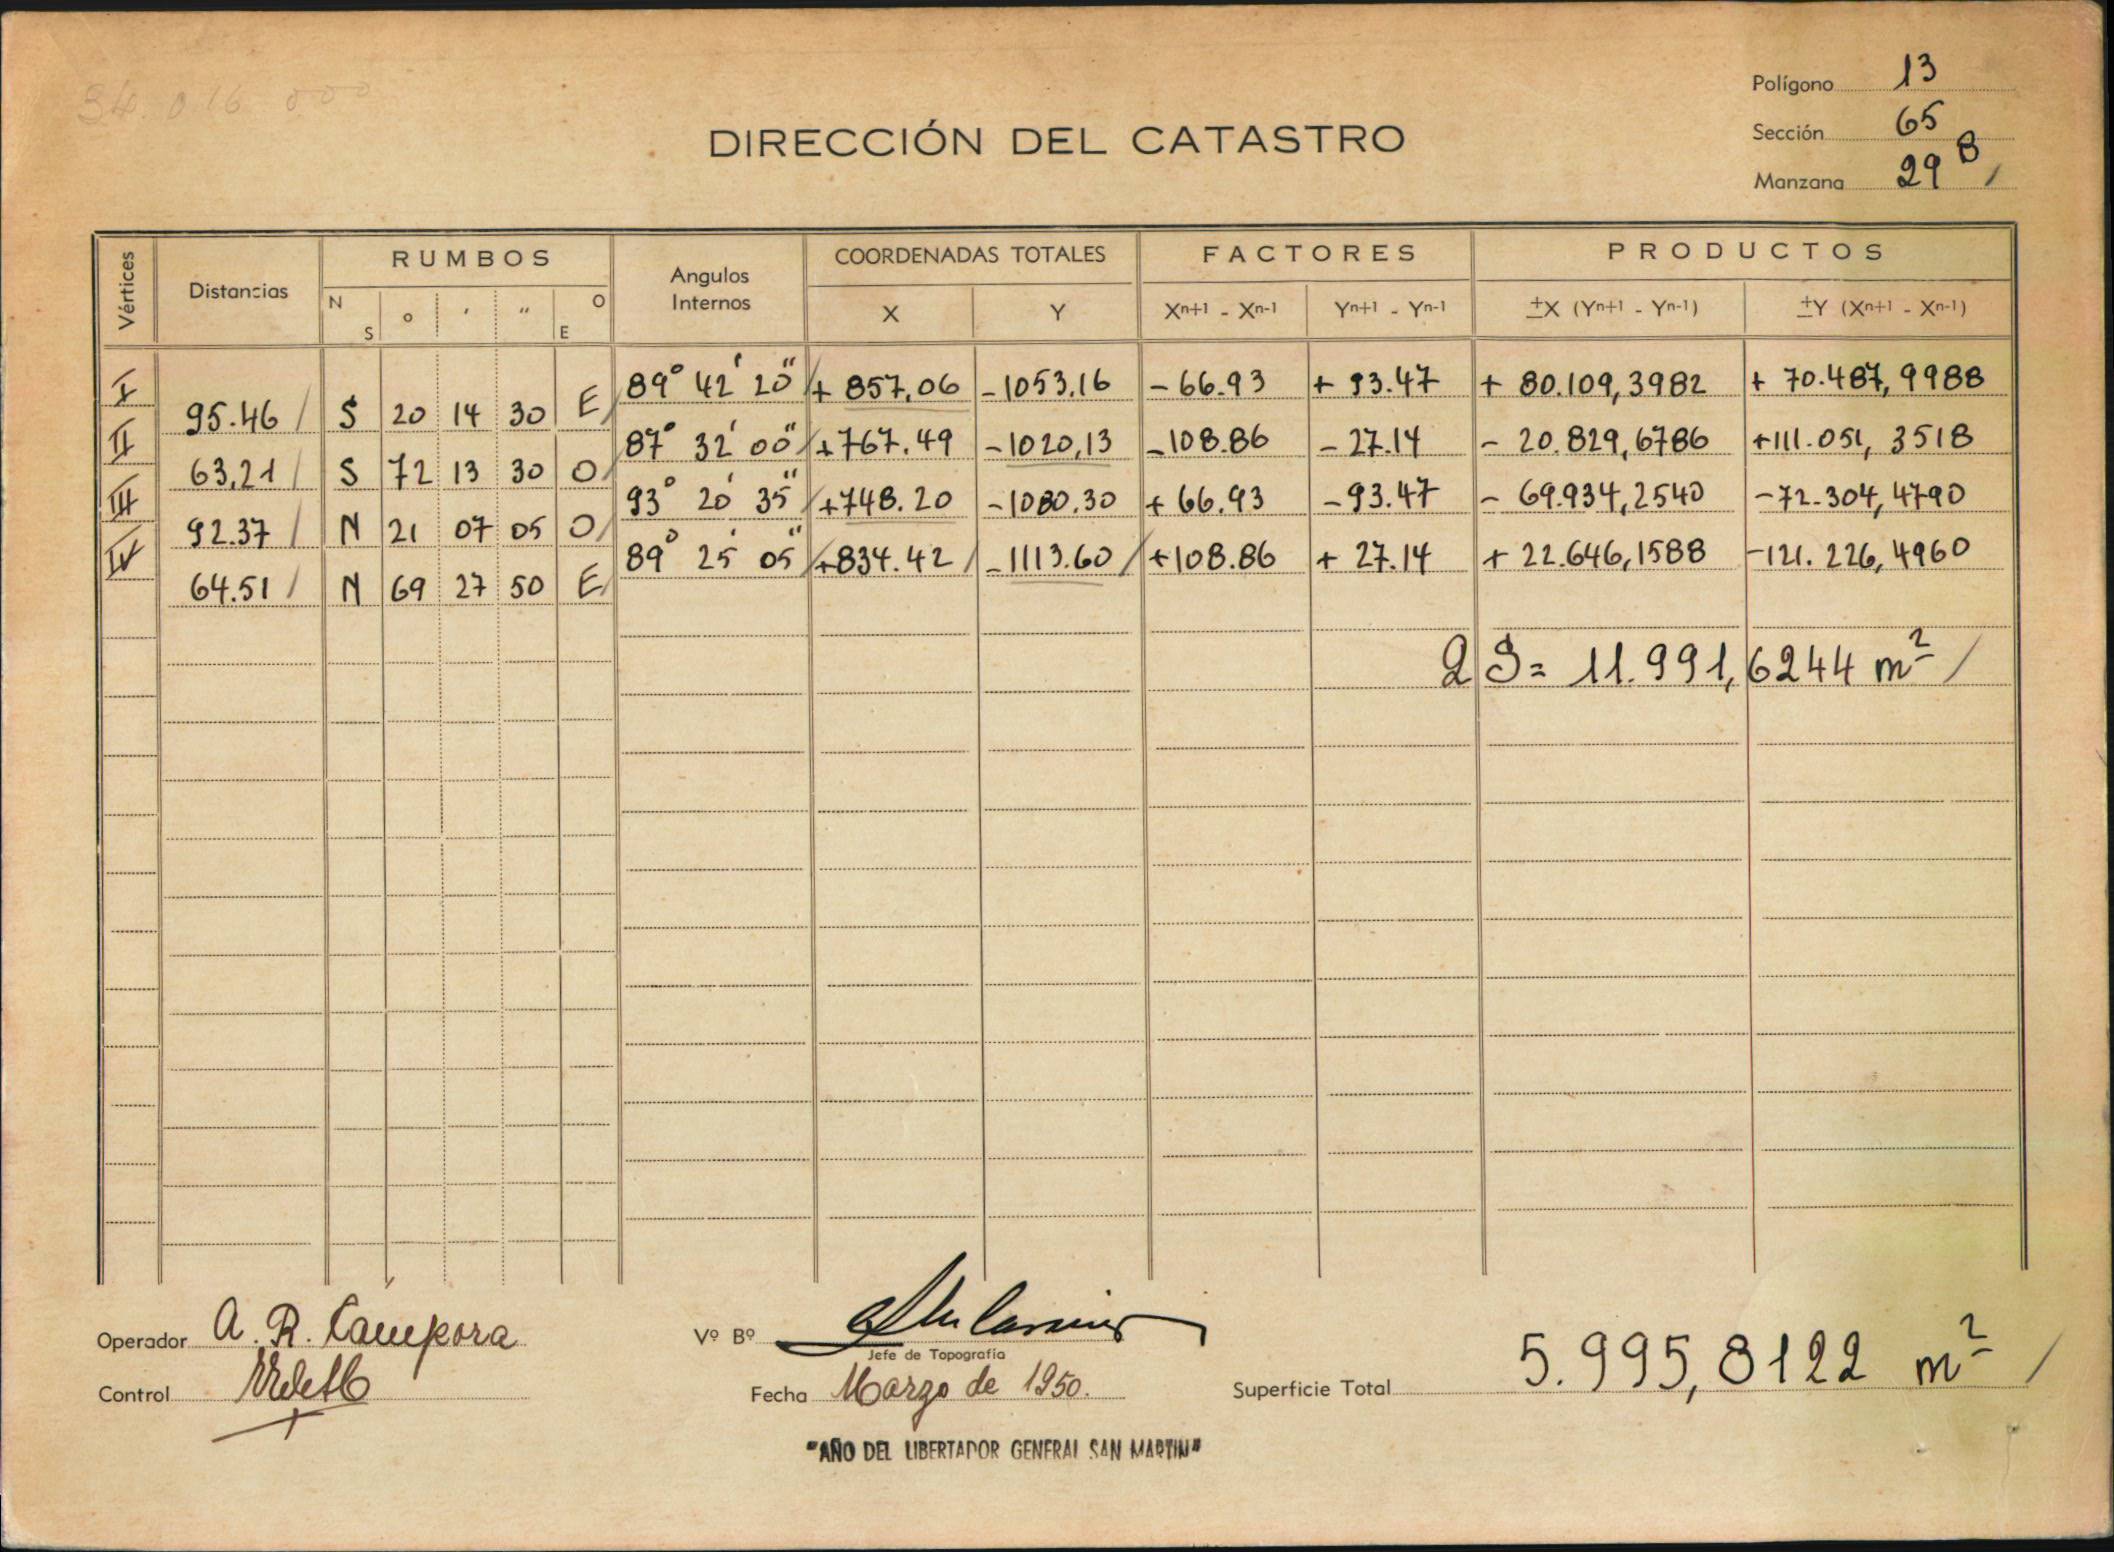 34.016 000
Polígono 13
Sección 65
Manzana 29 B /
DIRECCIÓN DEL CATASTRO
Vértices Distancias RUMBOS Angulos Internos COORDENADAS TOTALES FACTORES PRODUCTOS
N S o ' " O E X Y Xn+1 - Xn-1 Yn+1 - Yn-1 ±X (Yn+1 - Yn-1) ±Y (Xn+1 - Xn-1)
I 89° 42' 20" / + 857,06 - 1053,16 - 66.93 + 93.47 + 80.109,3982 + 70.487,9988
95.46 / S 20 14 30 E /
II 87° 32' 00" / + 767.49 - 1020,13 - 108.86 - 27.14 - 20.829,6786 + 111.051,3518
63,21 / S 72 13 30 O /
III 93° 20' 35" / + 748.20 - 1080,30 + 66.93 - 93.47 - 69.934,2540 - 72.304,4790
92.37 / N 21 07 05 O /
IV 89° 25' 05" / + 834.42 / - 1113.60 / + 108.86 + 27.14 + 22.646,1588 - 121.226,4960
64.51 / N 69 27 50 E /
2 S = 11.991,6244 m² /
Operador A. R. Cámpora
Vº Bº
Jefe de Topografía
Control
Fecha Marzo de 1950.
Superficie Total 5.995,8122 m² /
"AÑO DEL LIBERTADOR GENERAL SAN MARTIN"